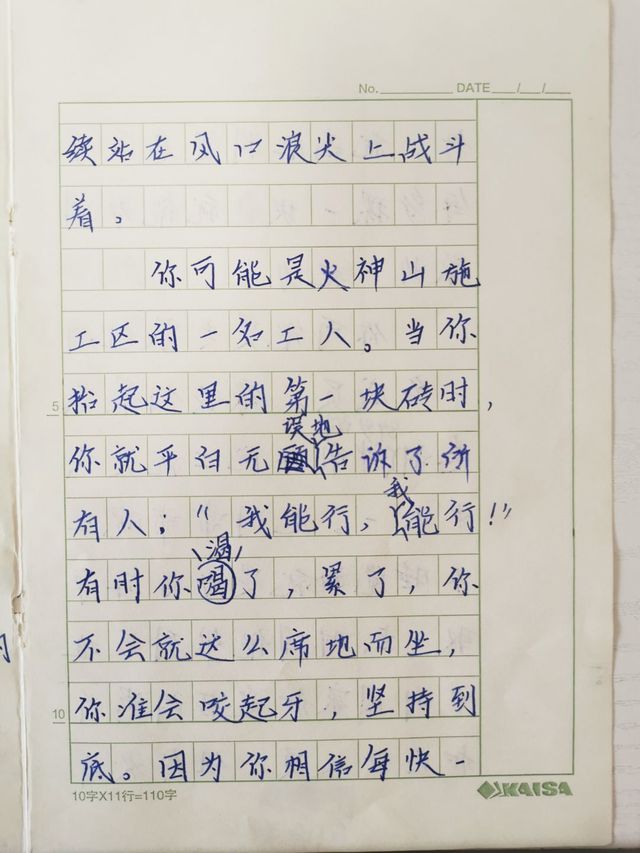 No.________ DATE___/___/___
续站在风口浪尖上战斗
着。
你可能是火神山施
工区的一名工人。当你
抬起这里的第一块砖时，
你就平白无误地告诉了所
有人：“我能行，我能行！”
有时你渴了，累了，你
不会就这么席地而坐，
你准会咬起牙，坚持到
底。因为你相信每快一
5
10
10字X11行=110字
KAISA